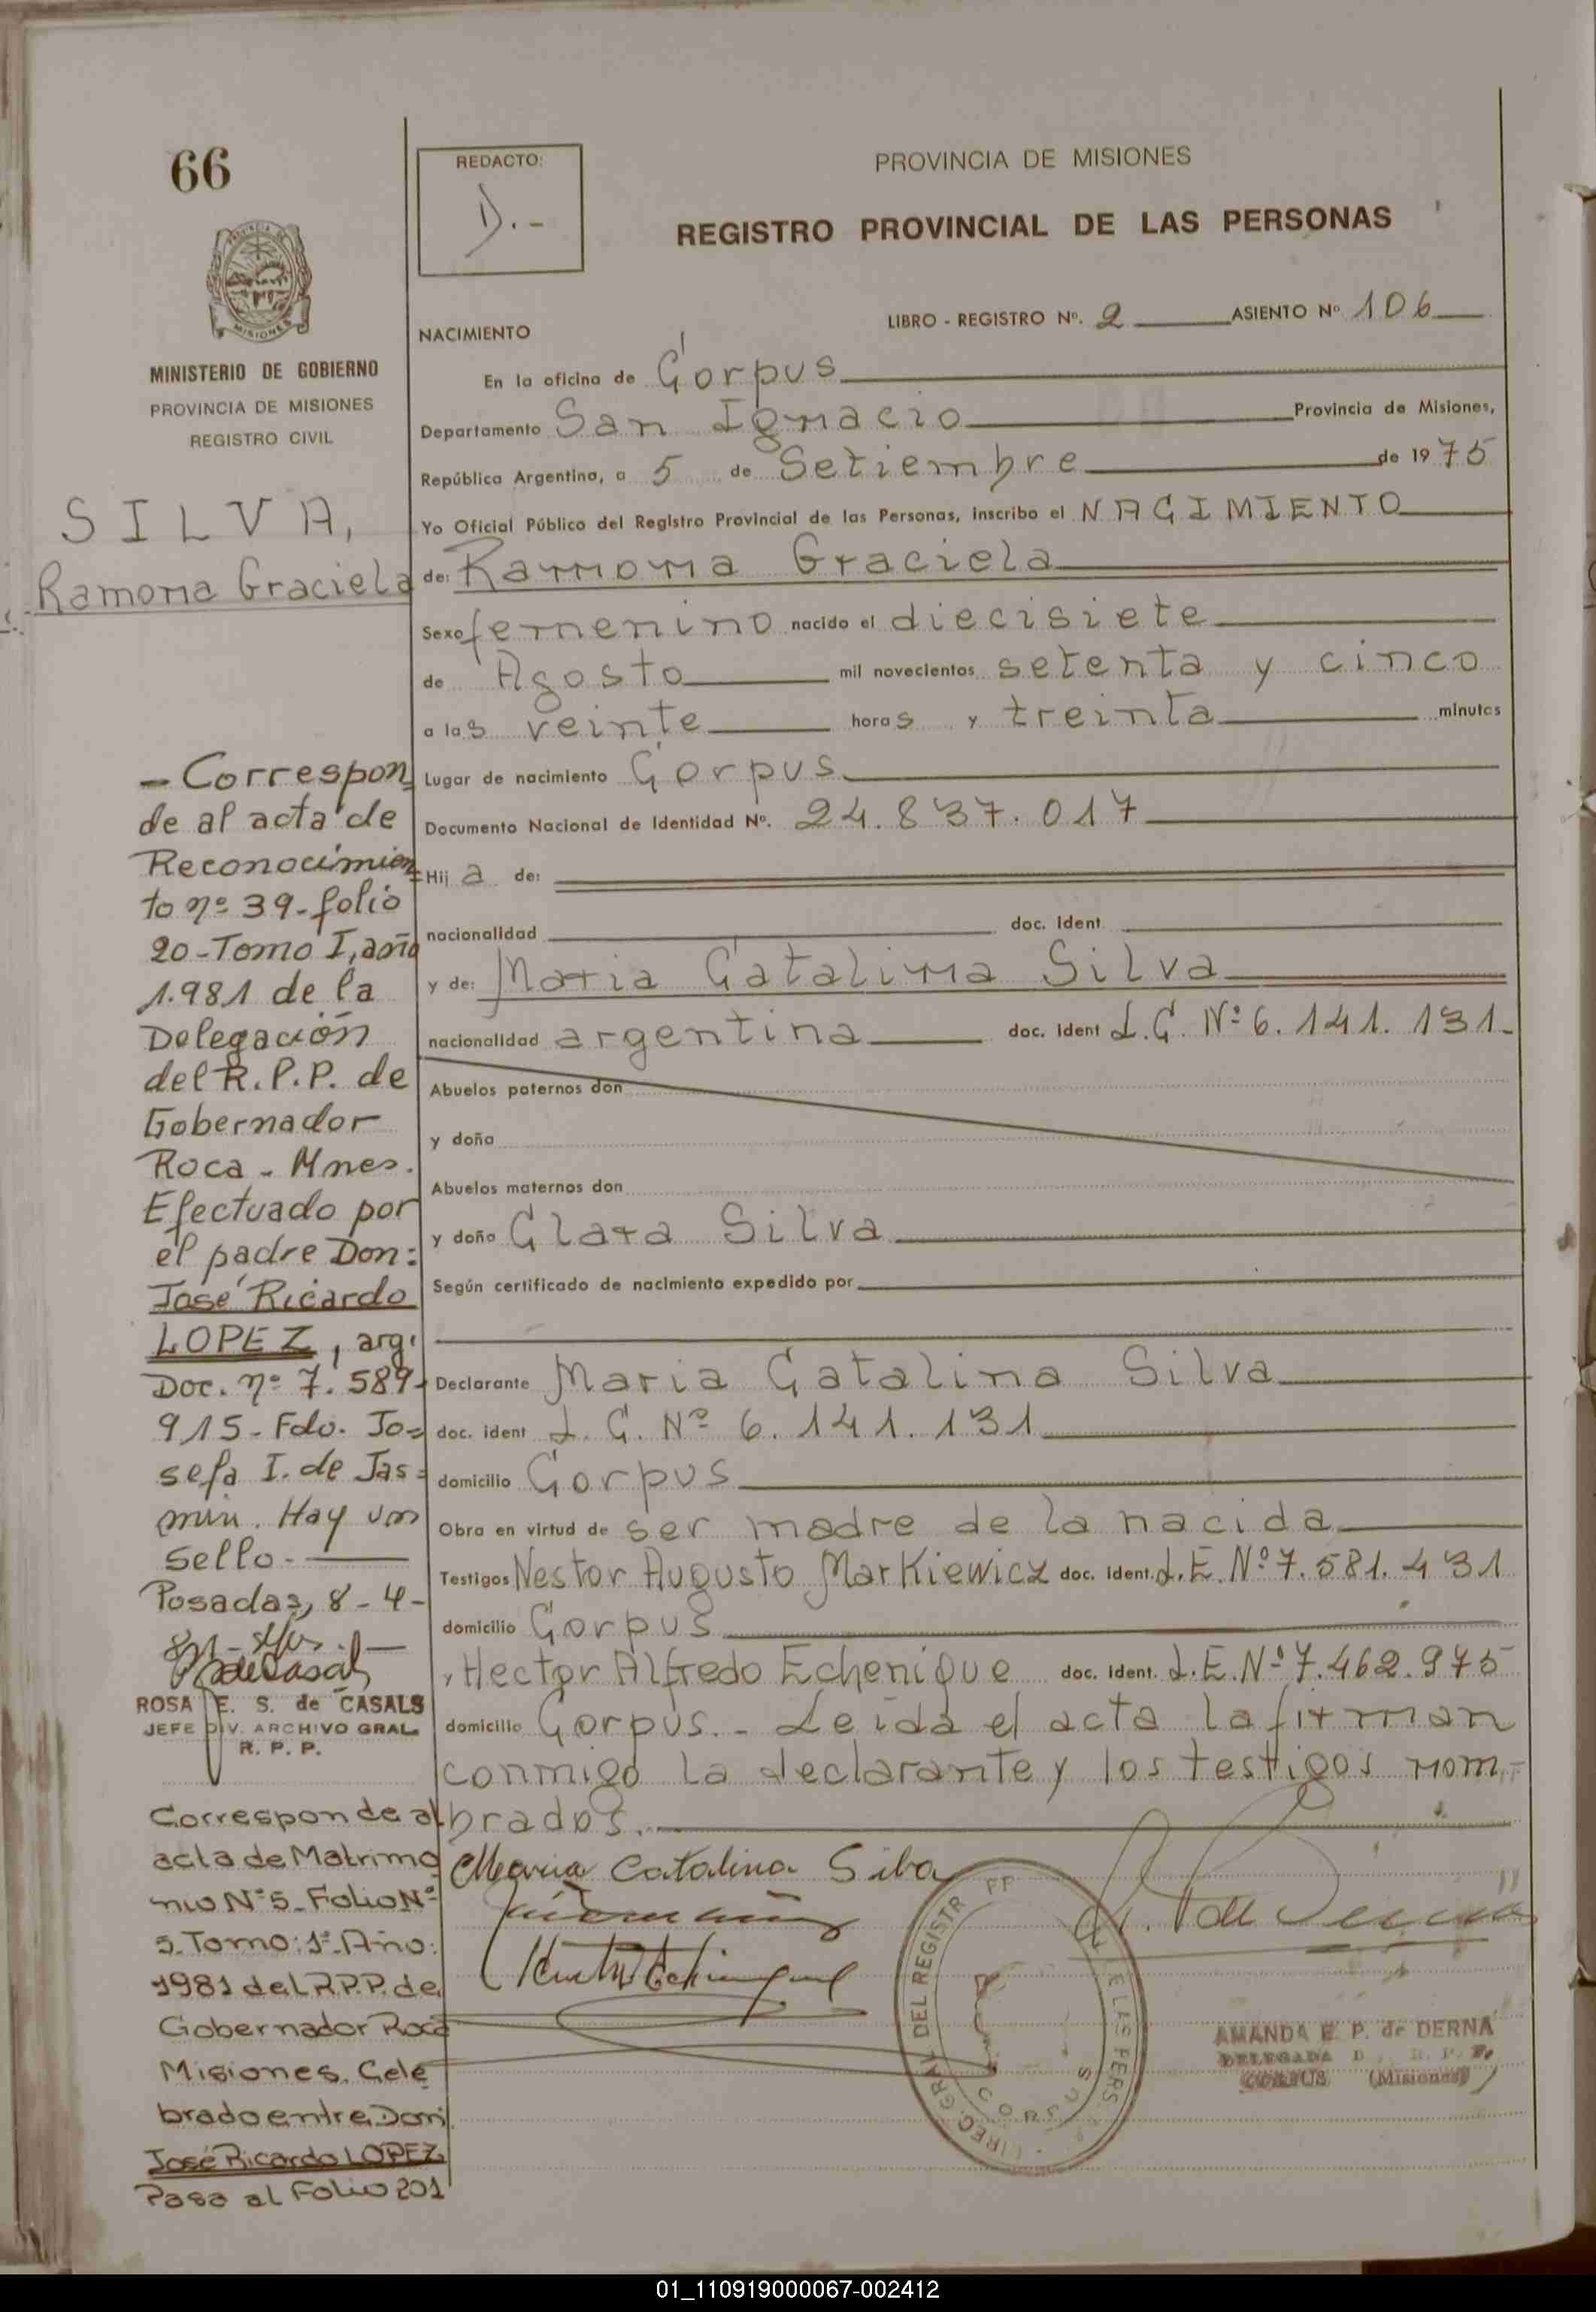 66
PROVINCIA DE MISIONES
MINISTERIO DE GOBIERNO
PROVINCIA DE MISIONES
REGISTRO CIVIL
SILVA,
Ramona Graciela
- Correspon
de al acta de
Reconocimien
to nº 39-folio
20-Tomo I, año
1.981 de la
Delegación
del R.P.P. de
Gobernador
Roca - Mnes.
Efectuado por
el padre Don:
José Ricardo
LOPEZ, arg.
Doc. nº 7.589-
915-Fdo. Jo=
sefa I. de Jas=
min. Hay un
Sello.-
Posadas, 8-4-
81-
ROSA E. S. de CASALS
JEFE DIV. ARCHIVO GRAL.
R. P. P.
Corresponde al
acta de Matrimo
nio Nº5-Folio Nº
5-Tomo:1º-Año:
1981 del R.P.P. de
Gobernador Roca
Misiones. Cele
brado entre Don
José Ricardo LOPEZ
Pasa al Folio 201
REDACTO:
D.-
PROVINCIA DE MISIONES
REGISTRO PROVINCIAL DE LAS PERSONAS
LIBRO - REGISTRO Nº. 2 ASIENTO Nº 106
NACIMIENTO
En la oficina de Corpus
Departamento San Ignacio Provincia de Misiones,
República Argentina, a 5 de Setiembre de 1975
Yo Oficial Público del Registro Provincial de las Personas, inscribo el NACIMIENTO
de: Ramona Graciela
Sexo femenino nacido el diecisiete
de Agosto mil novecientos setenta y cinco
a las veinte horas y treinta minutos
Lugar de nacimiento Corpus
Documento Nacional de Identidad Nº. 24.837.017
Hija de:
nacionalidad doc. ident
y de: Maria Catalina Silva
nacionalidad argentina doc. ident L.C. Nº 6.141.131-
Abuelos paternos don
y doña
Abuelos maternos don
y doña Clara Silva
Según certificado de nacimiento expedido por
Declarante Maria Catalina Silva
doc. ident L.C. Nº 6.141.131
domicilio Corpus
Obra en virtud de ser madre de la nacida
Testigos Nestor Augusto Markiewicz doc. ident. L.E. Nº 7.581.431
domicilio Corpus
y Hector Alfredo Echenique doc. ident. L.E. Nº 7.462.975
domicilio Corpus.- Leida el acta la firman
conmigo la declarante y los testigos nom-
brados.
Maria Catalina Silva
DIREC. GRAL DEL REGISTR PP DE LAS PERS.
CORPUS
AMANDA E. P. de DERNA
DELEGADA
CORPUS (Misiones)
01_110919000067-002412